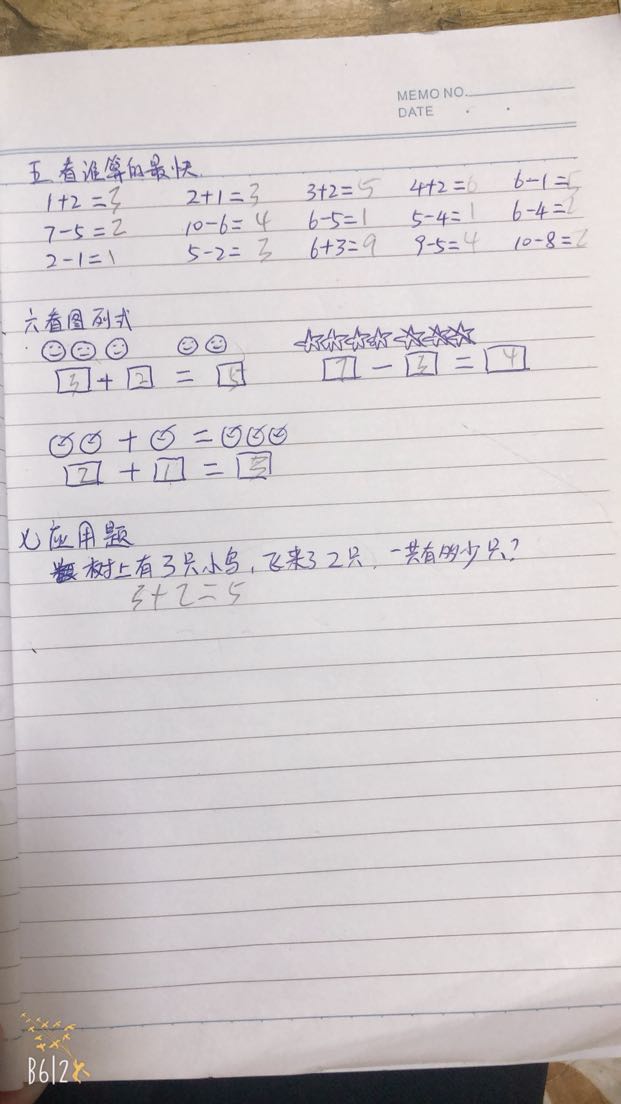 MEMO NO.
DATE
五 看谁算的最快
1+2=3 2+1=3 3+2=5 4+2=6 6-1=5
7-5=2 10-6=4 6-5=1 5-4=1 6-4=2
2-1=1 5-2=3 6+3=9 9-5=4 10-8=2
六 看图列式
3+2=5 7-3=4
2+1=3
七 应用题
树上有3只小鸟,飞来了2只,一共有多少只?
3+2=5
B612